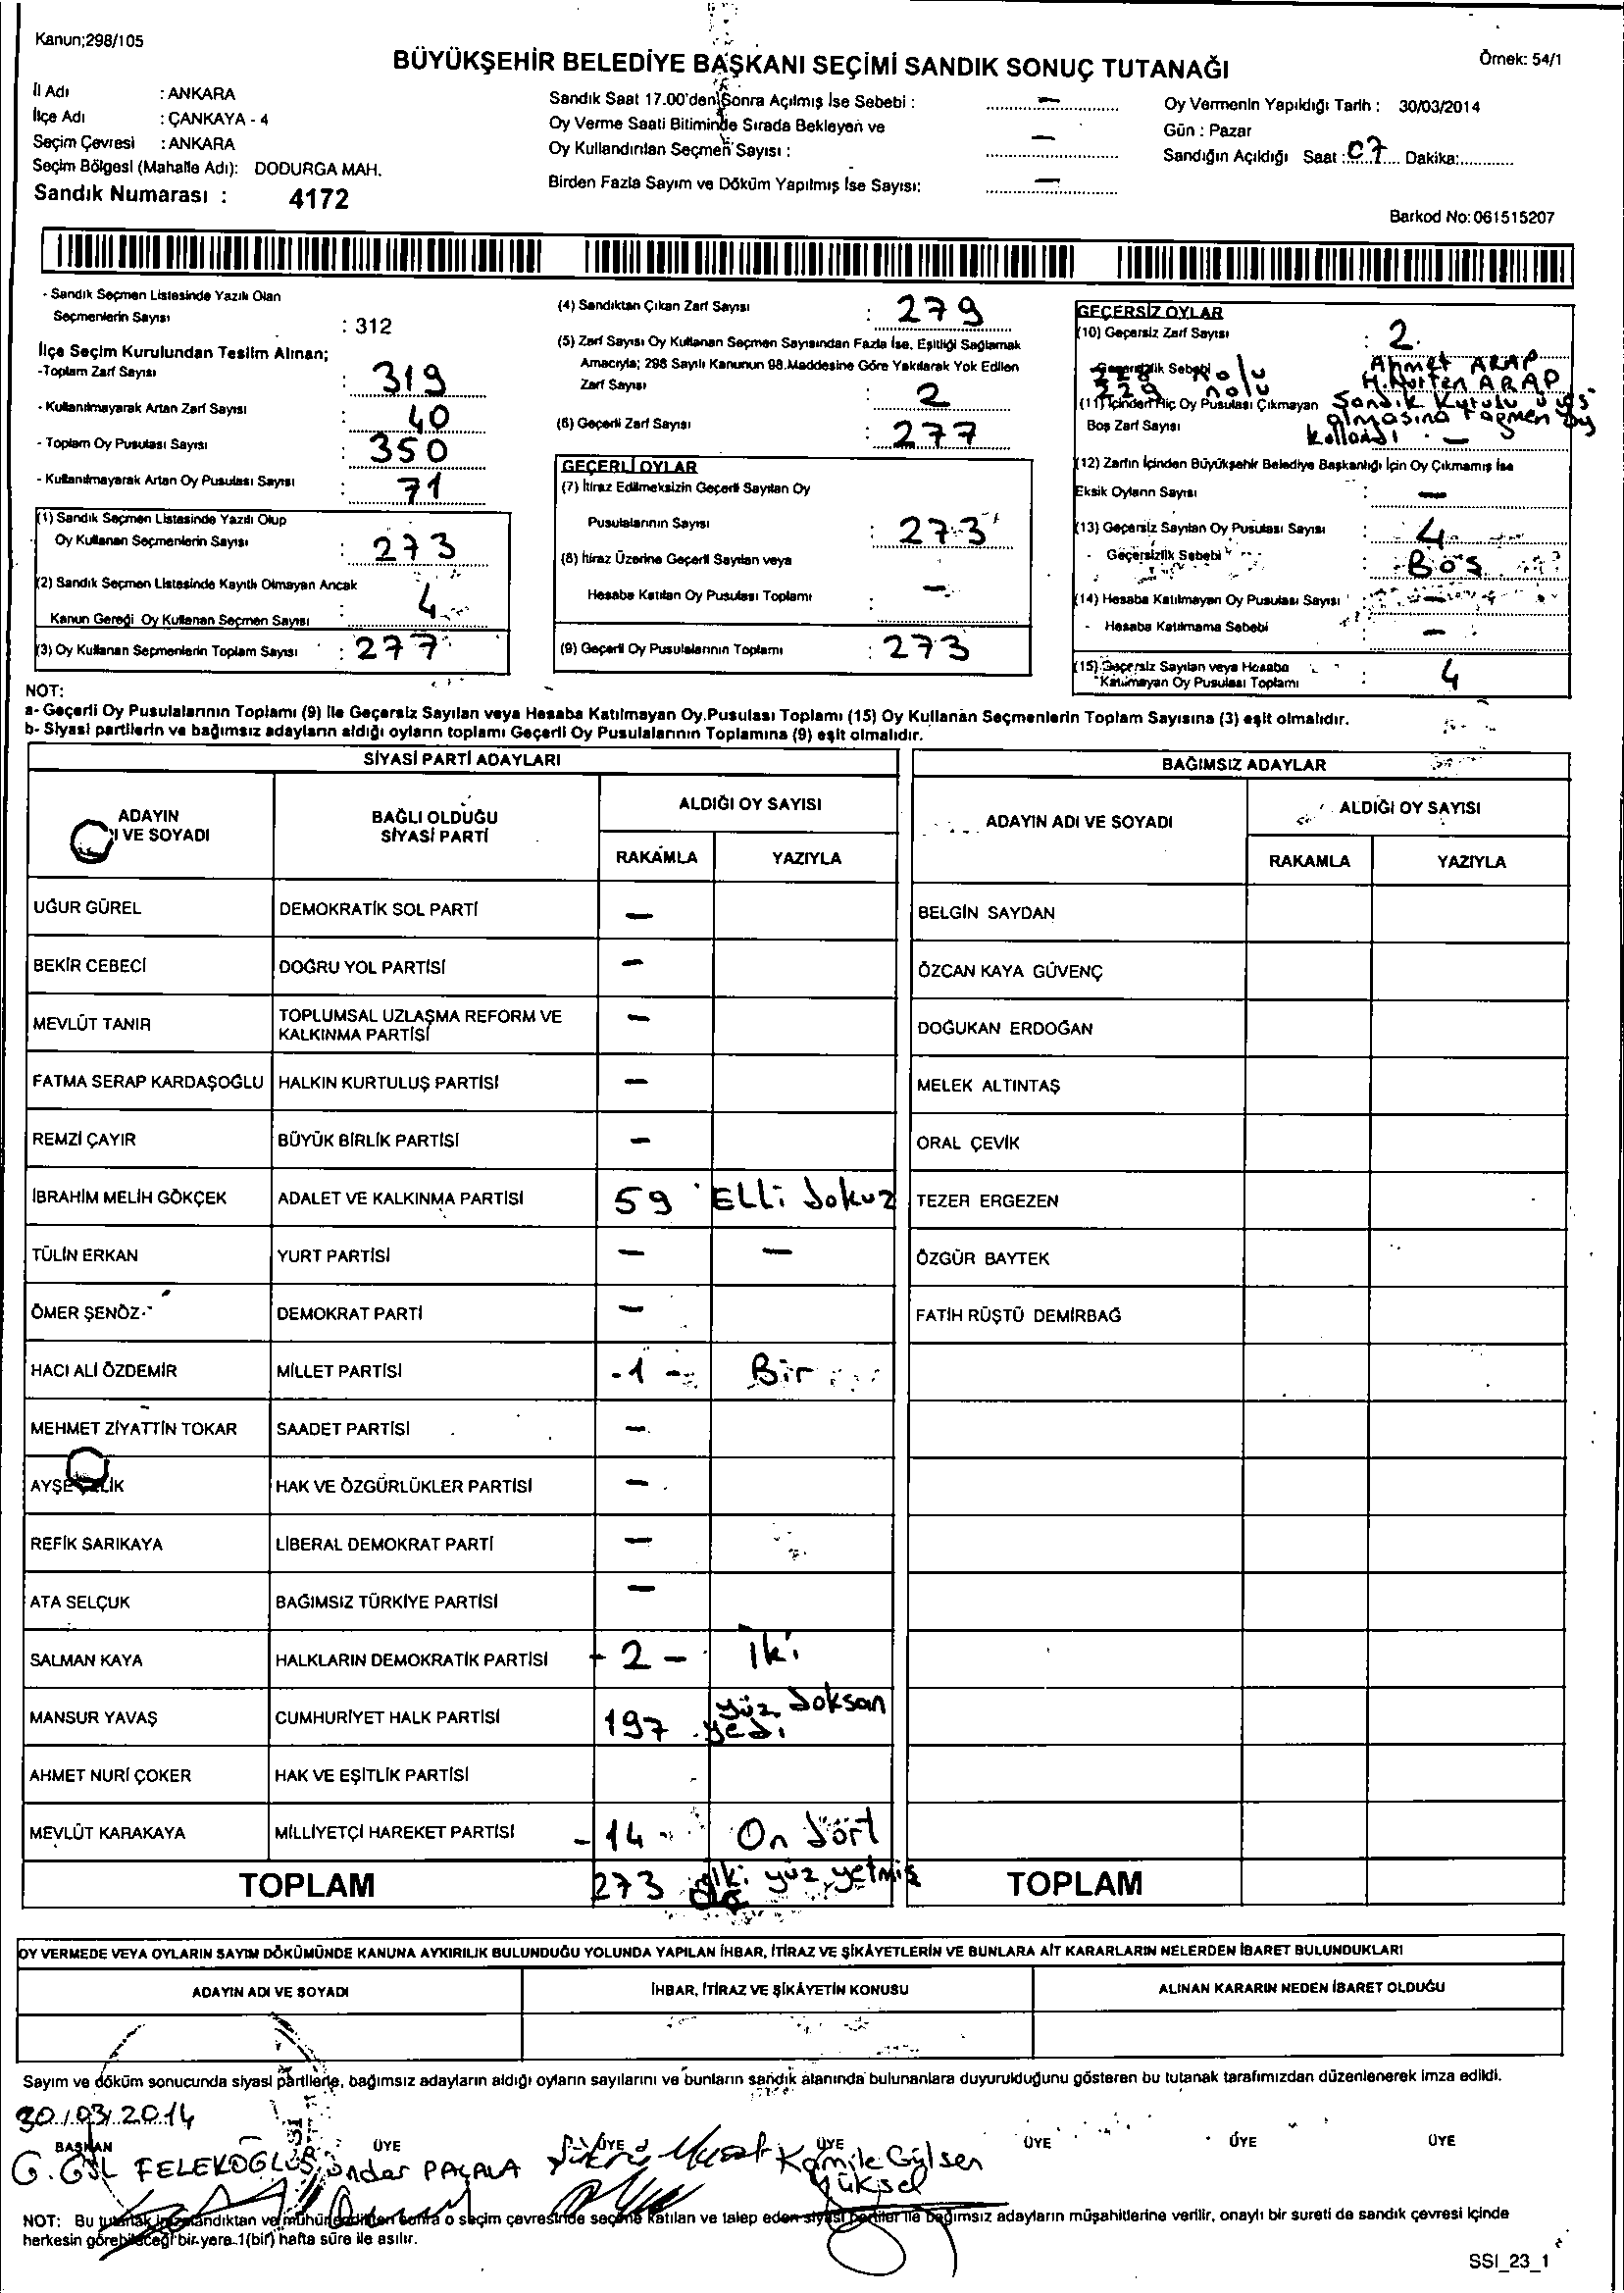 Kanun;298/105
BÜYÜKŞEHİR BELEDİYE BAŞKANI SEÇİMİ SANDIK SONUÇ TUTANAĞI
Örnek: 54/1
İl Adı : ANKARA
İlçe Adı : ÇANKAYA - 4
Seçim Çevresi : ANKARA
Seçim Bölgesi (Mahalle Adı): DODURGA MAH.
Sandık Numarası : 4172
Sandık Saat 17.00'den Sonra Açılmış İse Sebebi : —
Oy Verme Saati Bitiminde Sırada Bekleyen ve
Oy Kullandırılan Seçmen Sayısı : —
Birden Fazla Sayım ve Döküm Yapılmış İse Sayısı: —
Oy Vermenin Yapıldığı Tarih : 30/03/2014
Gün : Pazar
Sandığın Açıldığı Saat : 07 Dakika:
Barkod No: 061515207
- Sandık Seçmen Listesinde Yazılı Olan
Seçmenlerin Sayısı : 312
İlçe Seçim Kurulundan Teslim Alınan;
-Toplam Zarf Sayısı : 319
- Kullanılmayarak Artan Zarf Sayısı : 40
- Toplam Oy Pusulası Sayısı : 350
- Kullanılmayarak Artan Oy Pusulası Sayısı : 71
(1) Sandık Seçmen Listesinde Yazılı Olup
Oy Kullanan Seçmenlerin Sayısı : 273
(2) Sandık Seçmen Listesinde Kayıtlı Olmayan Ancak
Kanun Gereği Oy Kullanan Seçmen Sayısı : 4
(3) Oy Kullanan Seçmenlerin Toplam Sayısı : 277
(4) Sandıktan Çıkan Zarf Sayısı : 279
(5) Zarf Sayısı Oy Kullanan Seçmen Sayısından Fazla İse, Eşitliği Sağlamak
Amacıyla; 298 Sayılı Kanunun 98.Maddesine Göre Yakılarak Yok Edilen
Zarf Sayısı : 2
(6) Geçerli Zarf Sayısı : 277
GEÇERLİ OYLAR
(7) İtiraz Edilmeksizin Geçerli Sayılan Oy
Pusulalarının Sayısı : 273
(8) İtiraz Üzerine Geçerli Sayılan veya
Hesaba Katılan Oy Pusulası Toplamı : —
(9) Geçerli Oy Pusulalarının Toplamı : 273
GEÇERSİZ OYLAR
(10) Geçersiz Zarf Sayısı : 2.
Geçersizlik Sebebi
nolu Ahmet ARAP
229 nolu ARAP
(11) İçinden Hiç Oy Pusulası Çıkmayan
Boş Zarf Sayısı : —
Sandık Kurulu
olmasına
(12) Zarfın İçinden Büyükşehir Belediye Başkanlığı İçin Oy Çıkmamış İse
Eksik Oyların Sayısı : —
(13) Geçersiz Sayılan Oy Pusulası Sayısı : 4
- Geçersizlik Sebebi : Boş
(14) Hesaba Katılmayan Oy Pusulası Sayısı : —
- Hesaba Katılmama Sebebi : —
(15) Geçersiz Sayılan veya Hesaba
Katılmayan Oy Pusulası Toplamı : 4
NOT:
a- Geçerli Oy Pusulalarının Toplamı (9) ile Geçersiz Sayılan veya Hesaba Katılmayan Oy Pusulası Toplamı (15) Oy Kullanan Seçmenlerin Toplam Sayısına (3) eşit olmalıdır.
b- Siyasi partilerin ve bağımsız adayların aldığı oyların toplamı Geçerli Oy Pusulalarının Toplamına (9) eşit olmalıdır.
SİYASİ PARTİ ADAYLARI
BAĞIMSIZ ADAYLAR
ADAYIN
I VE SOYADI
BAĞLI OLDUĞU
SİYASİ PARTİ
ALDIĞI OY SAYISI
RAKAMLA YAZIYLA
ADAYIN ADI VE SOYADI
ALDIĞI OY SAYISI
RAKAMLA YAZIYLA
UĞUR GÜREL DEMOKRATİK SOL PARTİ — BELGİN SAYDAN
BEKİR CEBECİ DOĞRU YOL PARTİSİ — ÖZCAN KAYA GÜVENÇ
MEVLÜT TANIR TOPLUMSAL UZLAŞMA REFORM VE
KALKINMA PARTİSİ — DOĞUKAN ERDOĞAN
FATMA SERAP KARDAŞOĞLU HALKIN KURTULUŞ PARTİSİ — MELEK ALTINTAŞ
REMZİ ÇAYIR BÜYÜK BİRLİK PARTİSİ — ORAL ÇEVİK
İBRAHİM MELİH GÖKÇEK ADALET VE KALKINMA PARTİSİ 59 Elli dokuz TEZER ERGEZEN
TÜLİN ERKAN YURT PARTİSİ — — ÖZGÜR BAYTEK
ÖMER ŞENÖZ DEMOKRAT PARTİ — FATİH RÜŞTÜ DEMİRBAĞ
HACI ALİ ÖZDEMİR MİLLET PARTİSİ -1- Bir
MEHMET ZİYATTİN TOKAR SAADET PARTİSİ —
AYŞE ÇELİK HAK VE ÖZGÜRLÜKLER PARTİSİ —
REFİK SARIKAYA LİBERAL DEMOKRAT PARTİ —
ATA SELÇUK BAĞIMSIZ TÜRKİYE PARTİSİ —
SALMAN KAYA HALKLARIN DEMOKRATİK PARTİSİ - 2 - İki
MANSUR YAVAŞ CUMHURİYET HALK PARTİSİ 197 yüz doksan
yedi
AHMET NURİ ÇOKER HAK VE EŞİTLİK PARTİSİ
MEVLÜT KARAKAYA MİLLİYETÇİ HAREKET PARTİSİ - 14 - On dört
TOPLAM 273 iki yüz yetmiş
TOPLAM
OY VERMEDE VEYA OYLARIN SAYIM DÖKÜMÜNDE KANUNA AYKIRILIK BULUNDUĞU YOLUNDA YAPILAN İHBAR, İTİRAZ VE ŞİKÂYETLERİN VE BUNLARA AİT KARARLARIN NELERDEN İBARET BULUNDUKLARI
ADAYIN ADI VE SOYADI İHBAR, İTİRAZ VE ŞİKÂYETİN KONUSU ALINAN KARARIN NEDEN İBARET OLDUĞU
Sayım ve döküm sonucunda siyasi partilerle, bağımsız adayların aldığı oyların sayılarını ve bunların sandık alanında bulunanlara duyurulduğunu gösteren bu tutanak tarafımızdan düzenlenerek imza edildi.
30/03/2014
BAŞKAN ÜYE ÜYE ÜYE ÜYE ÜYE ÜYE
G. GÜL FELEKOĞLU Önder PAÇALA Kamile Gülsen
Yüksel
NOT: Bu tutanak imzalandıktan ve mühürlendikten sonra o seçim çevresinde seçime katılan ve talep eden siyasi partiler ile bağımsız adayların müşahitlerine verilir, onaylı bir sureti de sandık çevresi içinde
herkesin görebileceği bir yere 1(bir) hafta süre ile asılır.
SSI_23_1